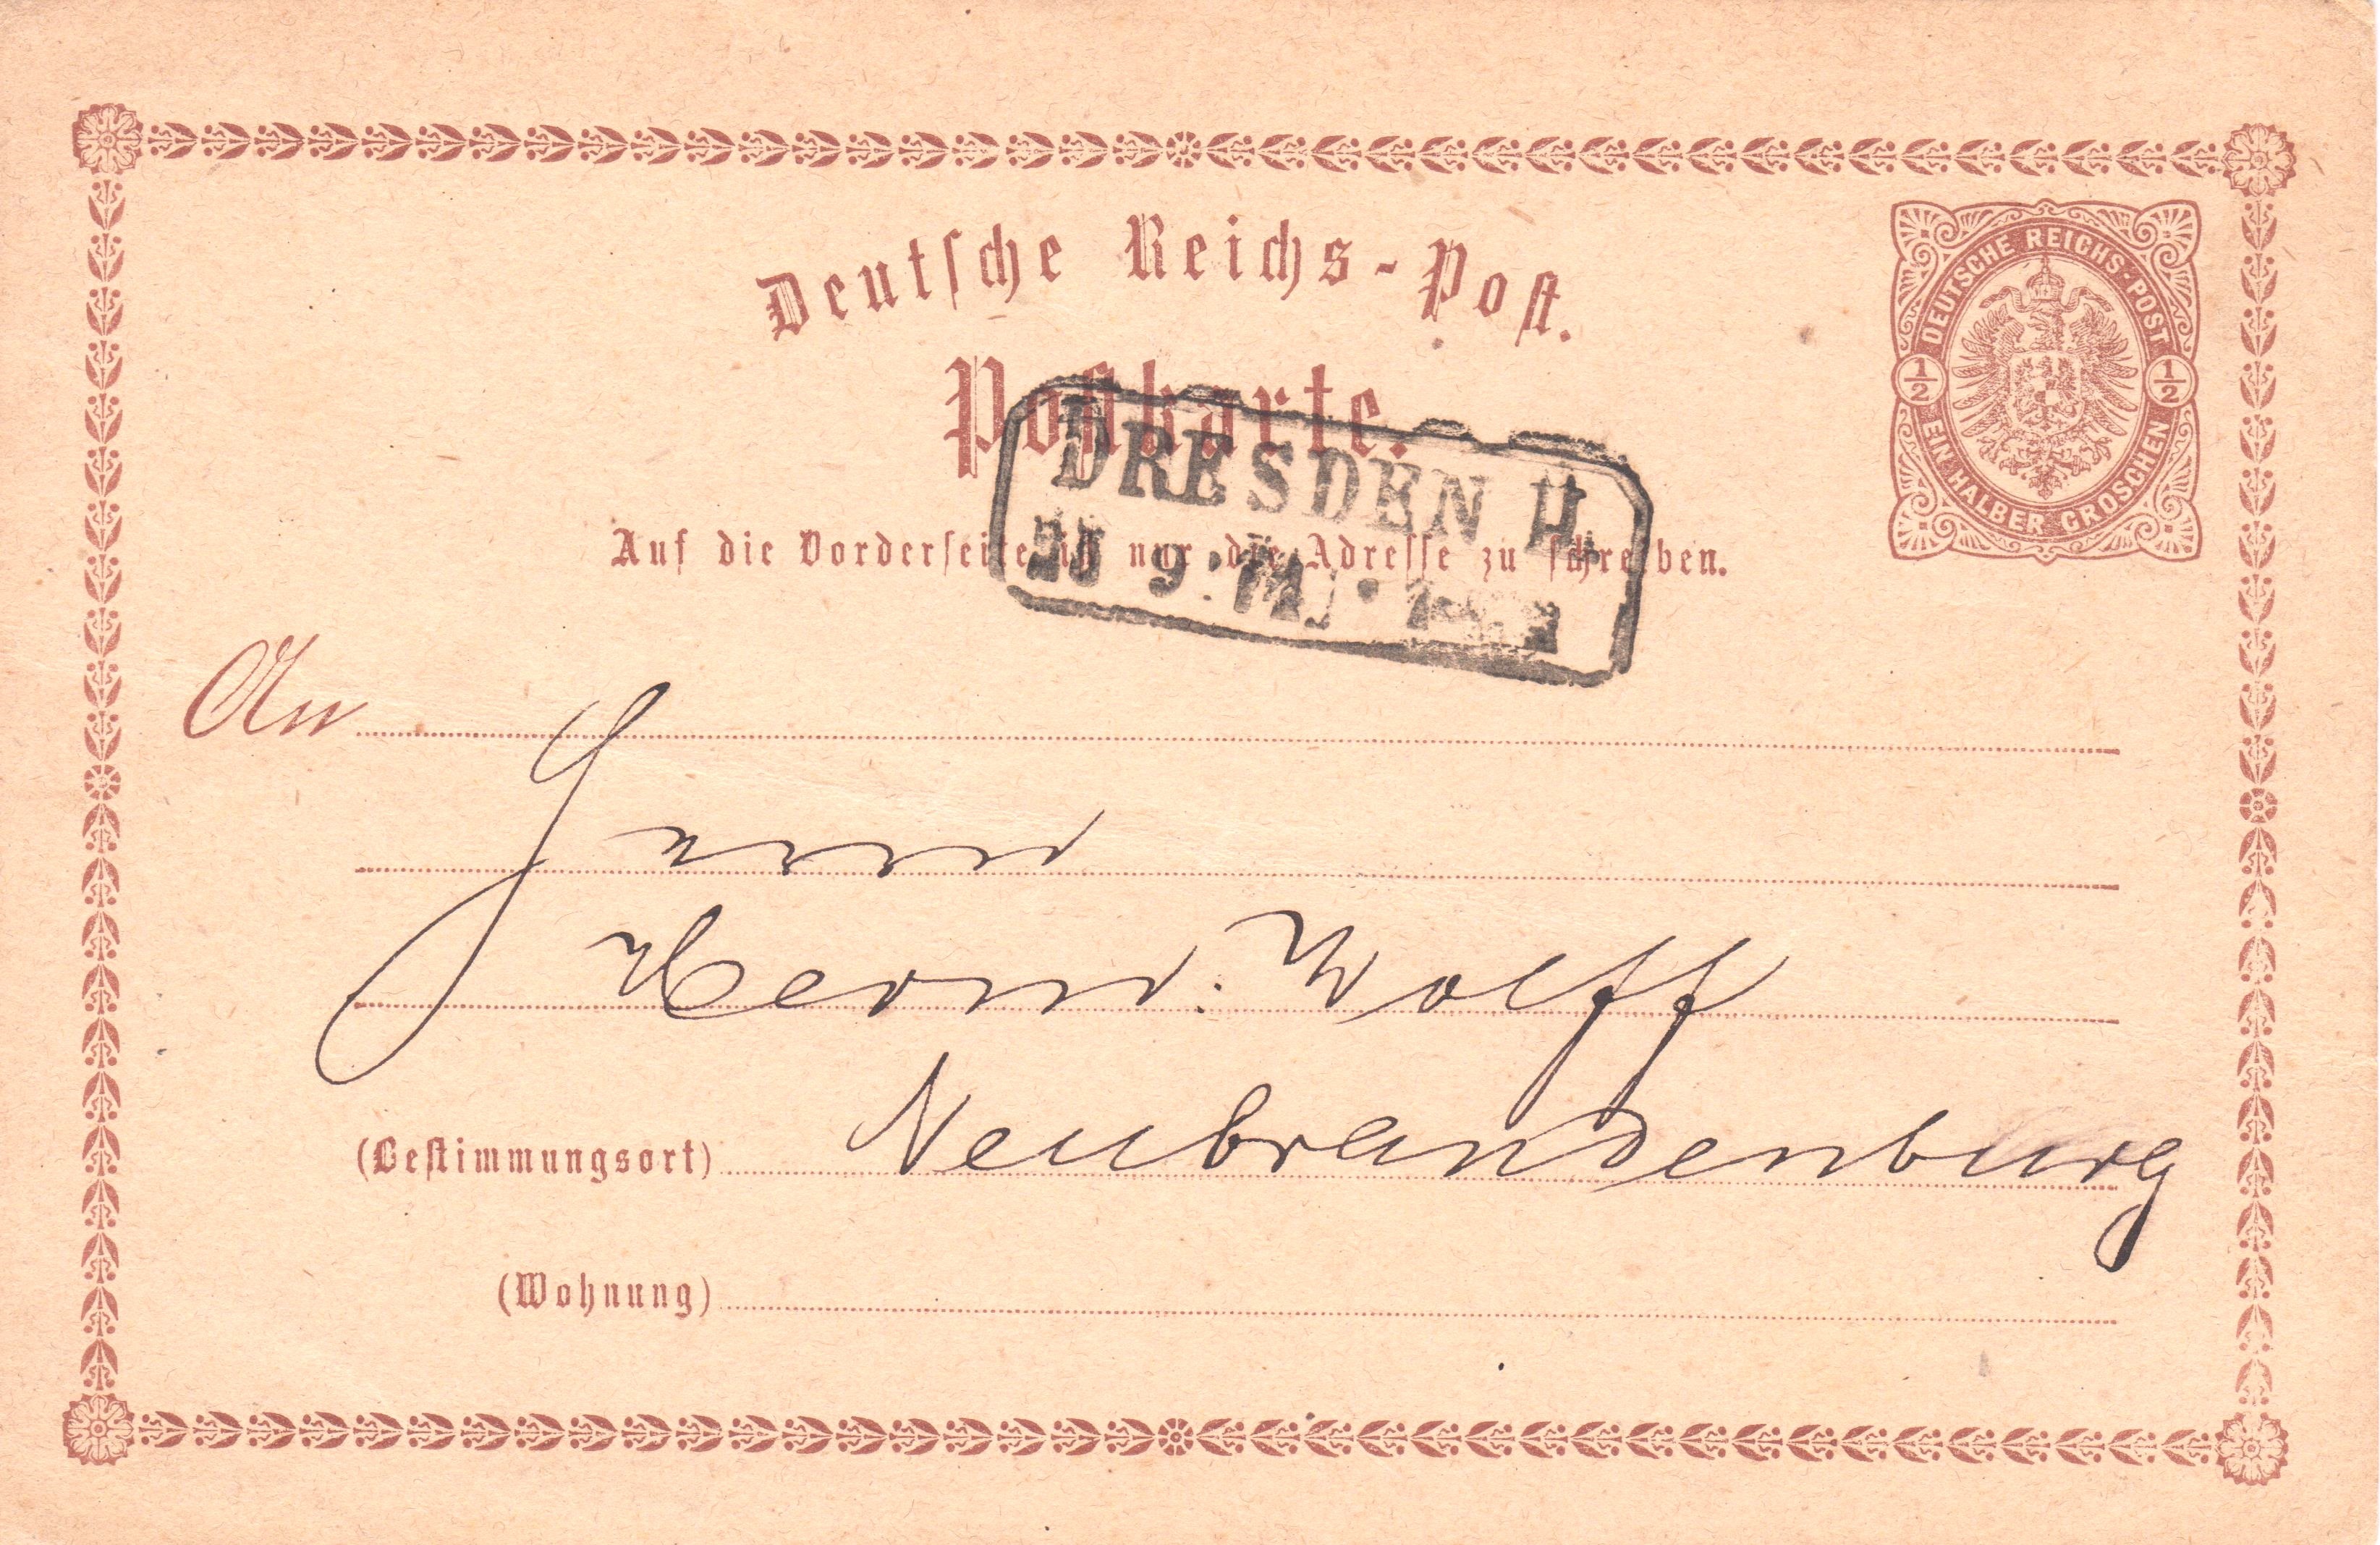 Deutsche Reichs-Post.
DEUTSCHE REICHS-POST
1/2 1/2
EIN HALBER GROSCHEN
Postkarte.
DRESDEN II.
Auf die Vorderseite ist nur die Adresse zu schreiben.
An
Herrn
Herm: Wolff
(Bestimmungsort) Neubrandenburg
(Wohnung)